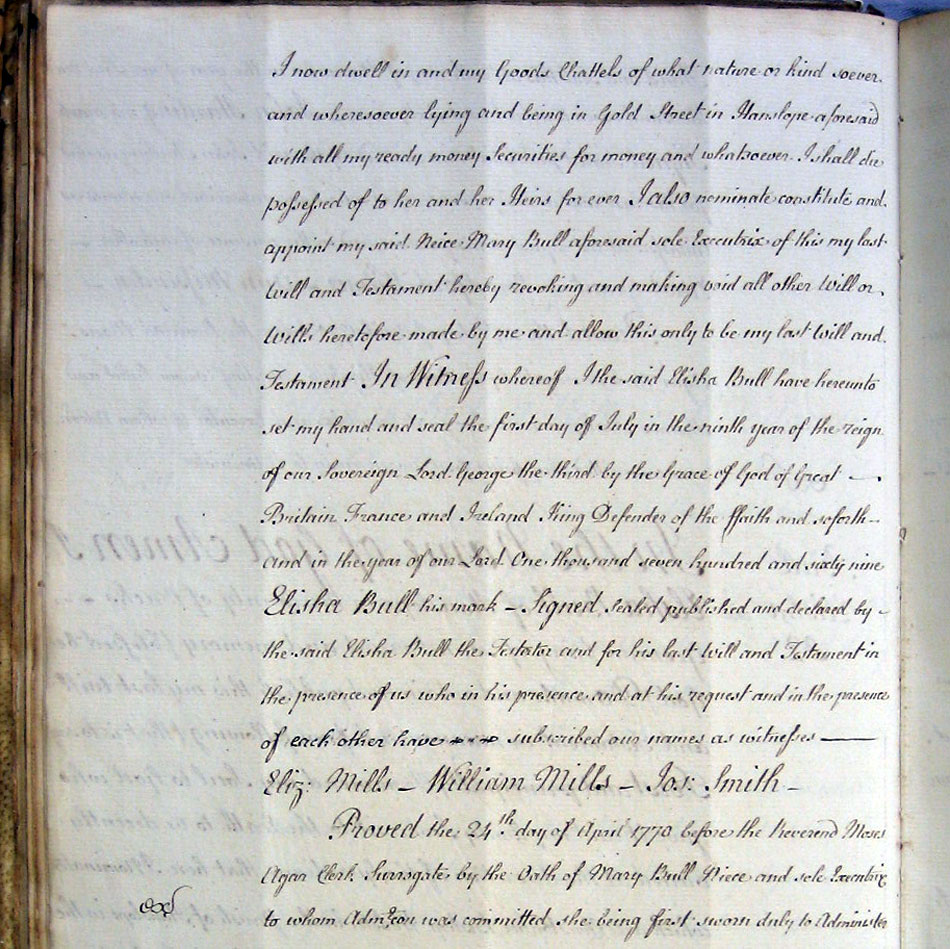 I now dwell in and my Goods Chattels of what nature or kind soever
and wheresoever lying and being in Gold Street in Hanslope aforesaid
with all my ready money Securities for money and whatsoever I shall die
possessed of to her and her Heirs for ever I also nominate constitute and
appoint my said Neice Mary Bull aforesaid sole Executrix of this my last
Will and Testament hereby revoking and making void all other Will or
Wills heretofore made by me and allow this only to be my last Will and
Testament In Witness whereof I the said Elisha Bull have hereunto
set my hand and seal the first day of July in the ninth year of the reign
of our Sovereign Lord George the third by the Grace of God of Great —
Britain France and Ireland King Defender of the ffaith and soforth —
and in the year of our Lord One thousand seven hundred and sixty nine
Elisha Bull his mark — Signed sealed published and declared by -
the said Elisha Bull the Testator and for his last Will and Testament in
the presence of us who in his presence and at his request and in the presence
of each other have subscribed our names as witnesses —
Eliz: Mills — William Mills — Jos: Smith —
Proved the 24th day of April 1770 before the Reverend Moses
Agar Clerk Surrogate by the Oath of Mary Bull Niece and sole Executrix
to whom Admcon was committed she being first sworn duly to Administer
exd